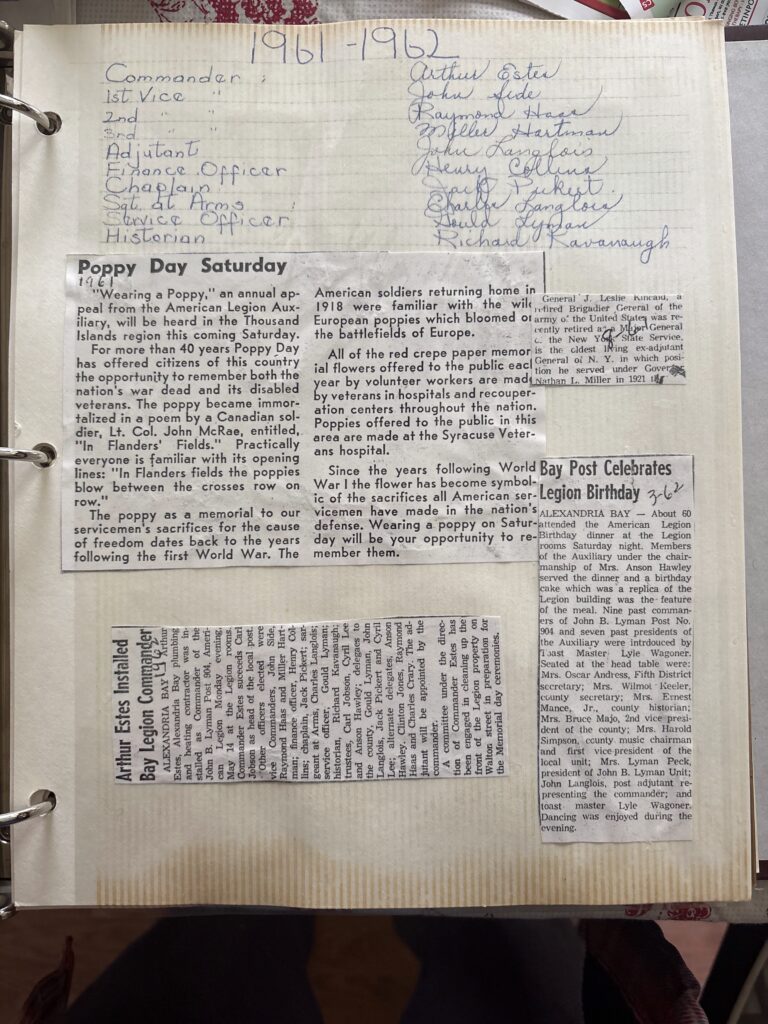 1961-1962
Commander : Arthur Estes
1st Vice " John Side
2nd " " Raymond Haas
3rd " " Miller Hartman
Adjutant John Langlois
Finance Officer Henry Collins
Chaplain Jack Pickert.
Sgt. at Arms Charles Langlois
Service Officer Gould Lyman
Historian Richard Kavanaugh
Poppy Day Saturday
1961
"Wearing a Poppy," an annual ap-
peal from the American Legion Aux-
iliary, will be heard in the Thousand
Islands region this coming Saturday.
For more than 40 years Poppy Day
has offered citizens of this country
the opportunity to remember both the
nation's war dead and its disabled
veterans. The poppy became immor-
talized in a poem by a Canadian sol-
dier, Lt. Col. John McRae, entitled,
"In Flanders' Fields." Practically
everyone is familiar with its opening
lines: "In Flanders fields the poppies
blow between the crosses row on
row."
The poppy as a memorial to our
servicemen's sacrifices for the cause
of freedom dates back to the years
following the first World War. The
American soldiers returning home in
1918 were familiar with the wild
European poppies which bloomed on
the battlefields of Europe.
All of the red crepe paper memor-
ial flowers offered to the public each
year by volunteer workers are made
by veterans in hospitals and recouper-
ation centers throughout the nation.
Poppies offered to the public in this
area are made at the Syracuse Veter-
ans hospital.
Since the years following World
War I the flower has become symbol-
ic of the sacrifices all American ser-
vicemen have made in the nation's
defense. Wearing a poppy on Satur-
day will be your opportunity to re-
member them.
General J. Leslie Kincaid, a
retired Brigadier Gereral of the
army of the United States was re-
cently retired as a Major General
the New York State Service,
is the oldest living ex-adjutant
General of N. Y. in which posi-
tion he served under Governor
Nathan L. Miller in 1921
Bay Post Celebrates
Legion Birthday 3-62
ALEXANDRIA BAY — About 60
attended the American Legion
Birthday dinner at the Legion
rooms Saturday night. Members
of the Auxiliary under the chair-
manship of Mrs. Anson Hawley
served the dinner and a birthday
cake which was a replica of the
Legion building was the feature
of the meal. Nine past comman-
ders of John B. Lyman Post No.
904 and seven past presidents of
the Auxiliary were intrdouced by
Toast Master Lyle Wagoner.
Seated at the head table were:
Mrs. Oscar Andress, Fifth District
secretary; Mrs. Wilmot Keeler,
county secretary; Mrs. Ernest
Mance, Jr., county historian;
Mrs. Bruce Majo, 2nd vice presi-
dent of the county; Mrs. Harold
Simpson, county music chairman
and first vice president of the
local unit; Mrs. Lyman Peck,
president of John B. Lyman Unit;
John Langlois, post adjutant re-
presenting the commander; and
toast master Lyle Wagoner.
Dancing was enjoyed during the
evening.
Arthur Estes Installed
Bay Legion Commander
1962
ALEXANDRIA BAY — Arthur
Estes, Alexandria Bay plumbing
and heating contractor was in-
stalled as commander of the
John B. Lyman Post 904, Ameri-
can Legion Monday evening,
May 14 at the Legion rooms.
Commander Estes succeeds Carl
Jobson as head of the local post.
Other officers elected were
vice Commanders, John Side,
Raymond Haas and Miller Hart-
man; finance officer, Henry Col-
lins; chaplain, Jack Pickert; sar-
geant at Arms, Charles Langlois;
service officer, Gould Lyman;
historian, Richard Kavanaugh;
trustees, Carl Jobson, Cyril Lee
and Anson Hawley; delegaes to
the county, Gould Lyman, John
Langlois, Jack Pickert and Cyril
Lee; alternate delegates, Anson
Hawley, Clinton Jones, Raymond
Haas and Charles Crary. The ad-
jutant will be appointed by the
commander.
A committee under the direc-
tion of Commander Estes has
been engaged in cleaning up the
front of the Legion property on
Walton street in preparation for
the Memorial day ceremonies.